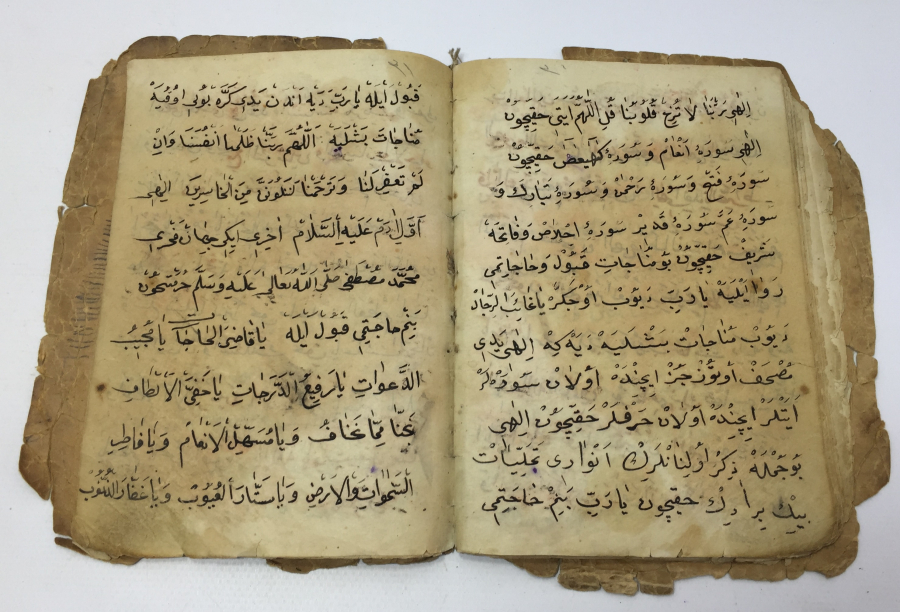 الهى ربنا لا تزغ قلوبنا قل اللهم ايتى حقيچون
الهى سورهٔ انعام و سورهٔ كهيعص حقيچون
سورهٔ فتح و سورهٔ رحمن و سورهٔ تبارك و
سورهٔ عم سورهٔ قدير سورهٔ اخلاص و فاتحهٔ
شريف حقيچون بو مناجات قبول و حاجاتمى
روا ايليه يا رب ديوب اوچ كز يا غايب الرجال
ديوب مناجات بشليه ديه كه الهى يدى
مصحف اوتوز جز ايچنده اولان سوره لر
ايتلر ايچنده اولان حرفلر حقيچون الهى
بو جمله ذكر اولنانلرك انوارى تجليات
بيك بر ادك حقيچون يا رب بنم حاجتمى
قبول ايله يا رب ديه اندن يدى كره بونى اوقيه
مناجات بشليه اللهم ربنا ظلمنا انفسنا وان
لم تغفر لنا وترحمنا لنكونن من الخاسرين الهى
اول ادم عليه السلام اخرى ايكى جهان فخرى
محمد مصطفى صلى الله تعالى عليه وسلم حرمتيچون
بنم حاجتمى قبول ايله يا قاضى الحاجات يا مجيب
الدعوات يا رفيع الدرجات يا خفى الالطاف
نجنا مما نخاف ويا مسهل الانعام ويا فاطر
السموات والارض ويا ستار العيوب ويا غفار الذنوب